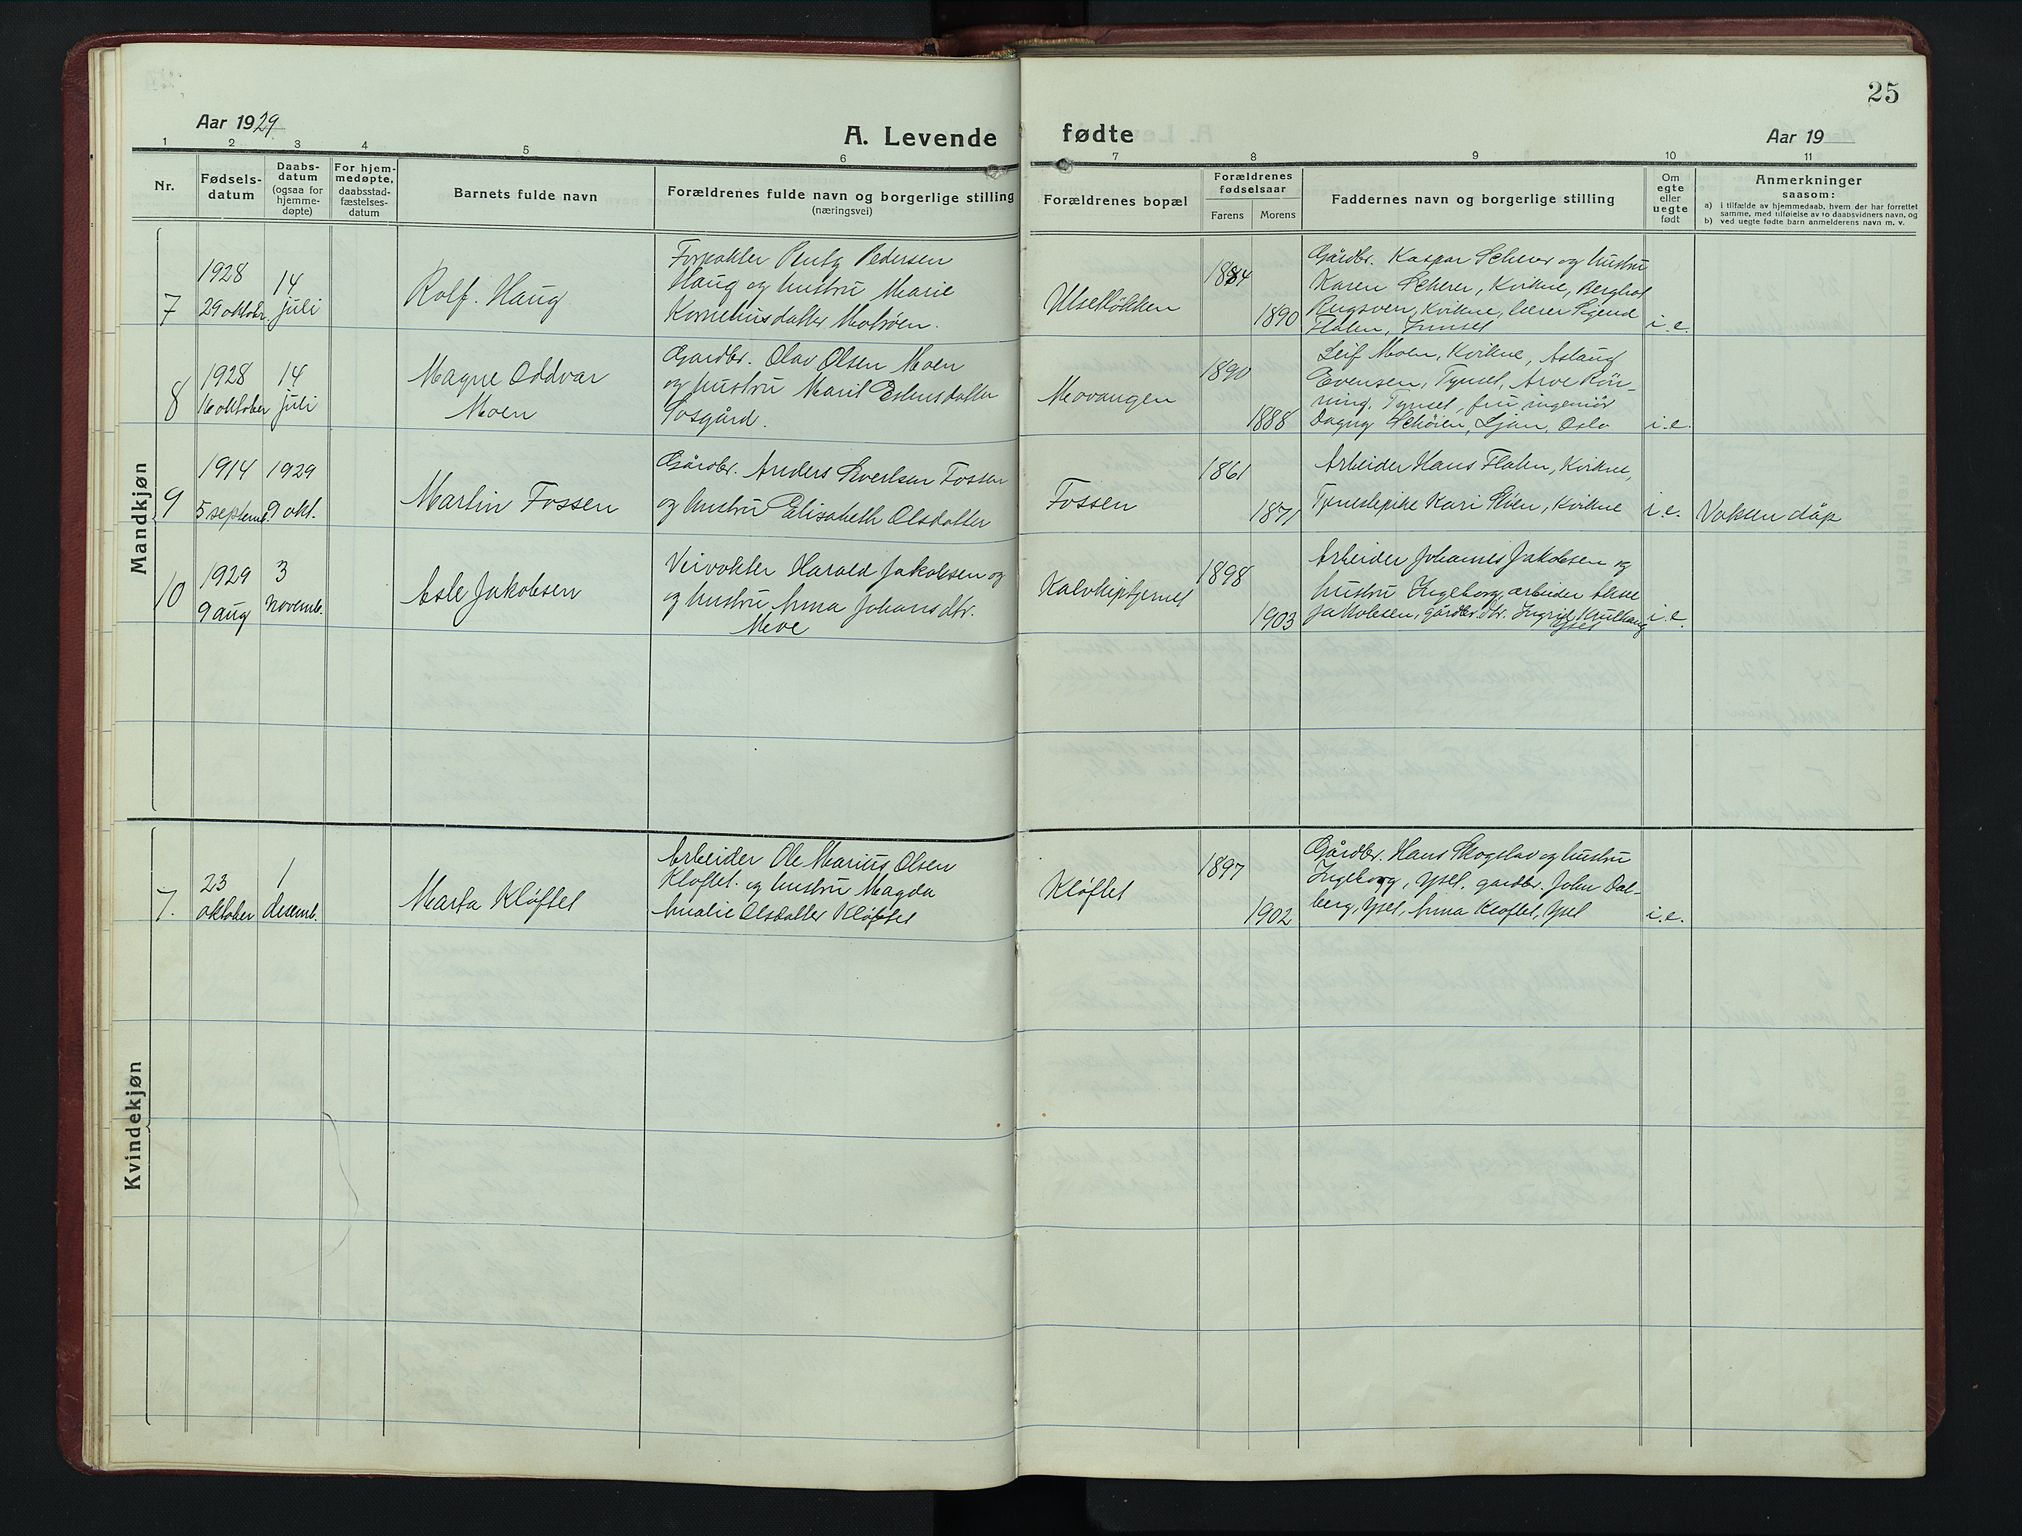 25
Aar 1929
A. Levende fødte
Aar 19
1 2 3 4 5 6 7 8 9 10 11
Nr.
Fødsels-
datum
Daabs-
datum
(ogsaa for
hjemme-
døpte)
For hjem-
medøpte,
daabsstad-
fæstelses-
datum
Barnets fulde navn
Forældrenes fulde navn og borgerlige stilling
(næringsvei)
Forældrenes bopæl
Forældrenes
fødselsaar
Farens Morens
Faddernes navn og borgerlige stilling
Om
egte
eller
uegte
født
Anmerkninger
saasom:
a) i tilfælde av hjemmedaab, hvem der har forrettet
samme, med tilføielse av to daabsvidners navn, og
b) ved uegte fødte barn anmelderens navn m. v.
Mandkjøn
7
1928
29 oktobr.
14
juli
Rolf Haug
Forpakter Pedersen
Haug og hustru Marie
Korneliusdatter
1884
1890
Gårdbr. Kaspar Scherer og hustru
Karen Scherer, Kvikne,
Kvikne, lærer
i.e.
8
1928
16 oktober
14
juli
Magne Oddvar
Moen
Gardbr. Olav Olsen Moen
og hustru Marit Estensdatter
Movangen
1890
1888
Leif Moen, Kvikne, Aslaug
Evensen, Tynset, Arve Røn-
ning, Tynset, fru ingeniør
Dagny Schøien, Ljan, Oslo
i.e.
9
1914
5 septemb.
1929
9 okt.
Martin Fossen
Gårdbr. Anders Fossen
og hustru Elisabeth Olsdatter
Fossen
1861
1871
Arbeider Hans Flaten, Kvikne,
Kari Kvikne
i.e.
Voksen dåp
10
1929
9 aug
3
novemb.
Asle Jakobsen
Veivokter Harald Jakobsen og
og hustru Anna Johansdtr.
1898
1903
Arbeider Johannes Jakobsen og
hustru Ingeborg, arbeider
Jakobsen, gårdbr. dtr. Ingrid
Yset
i.e.
Kvindekjøn
7.
23
oktober
1
desemb.
Marta Kløftet
Arbeider Ole Marius Olsen
Kløftet og hustru Magda
Amalie Olsdatter Kløftet
Kløftet
1897
1902
Gårdbr. Hans og hustru
Ingeborg, Yset, gardbr. John Dal-
berg, Yset, Anna Kløftet, Yset
i.e.